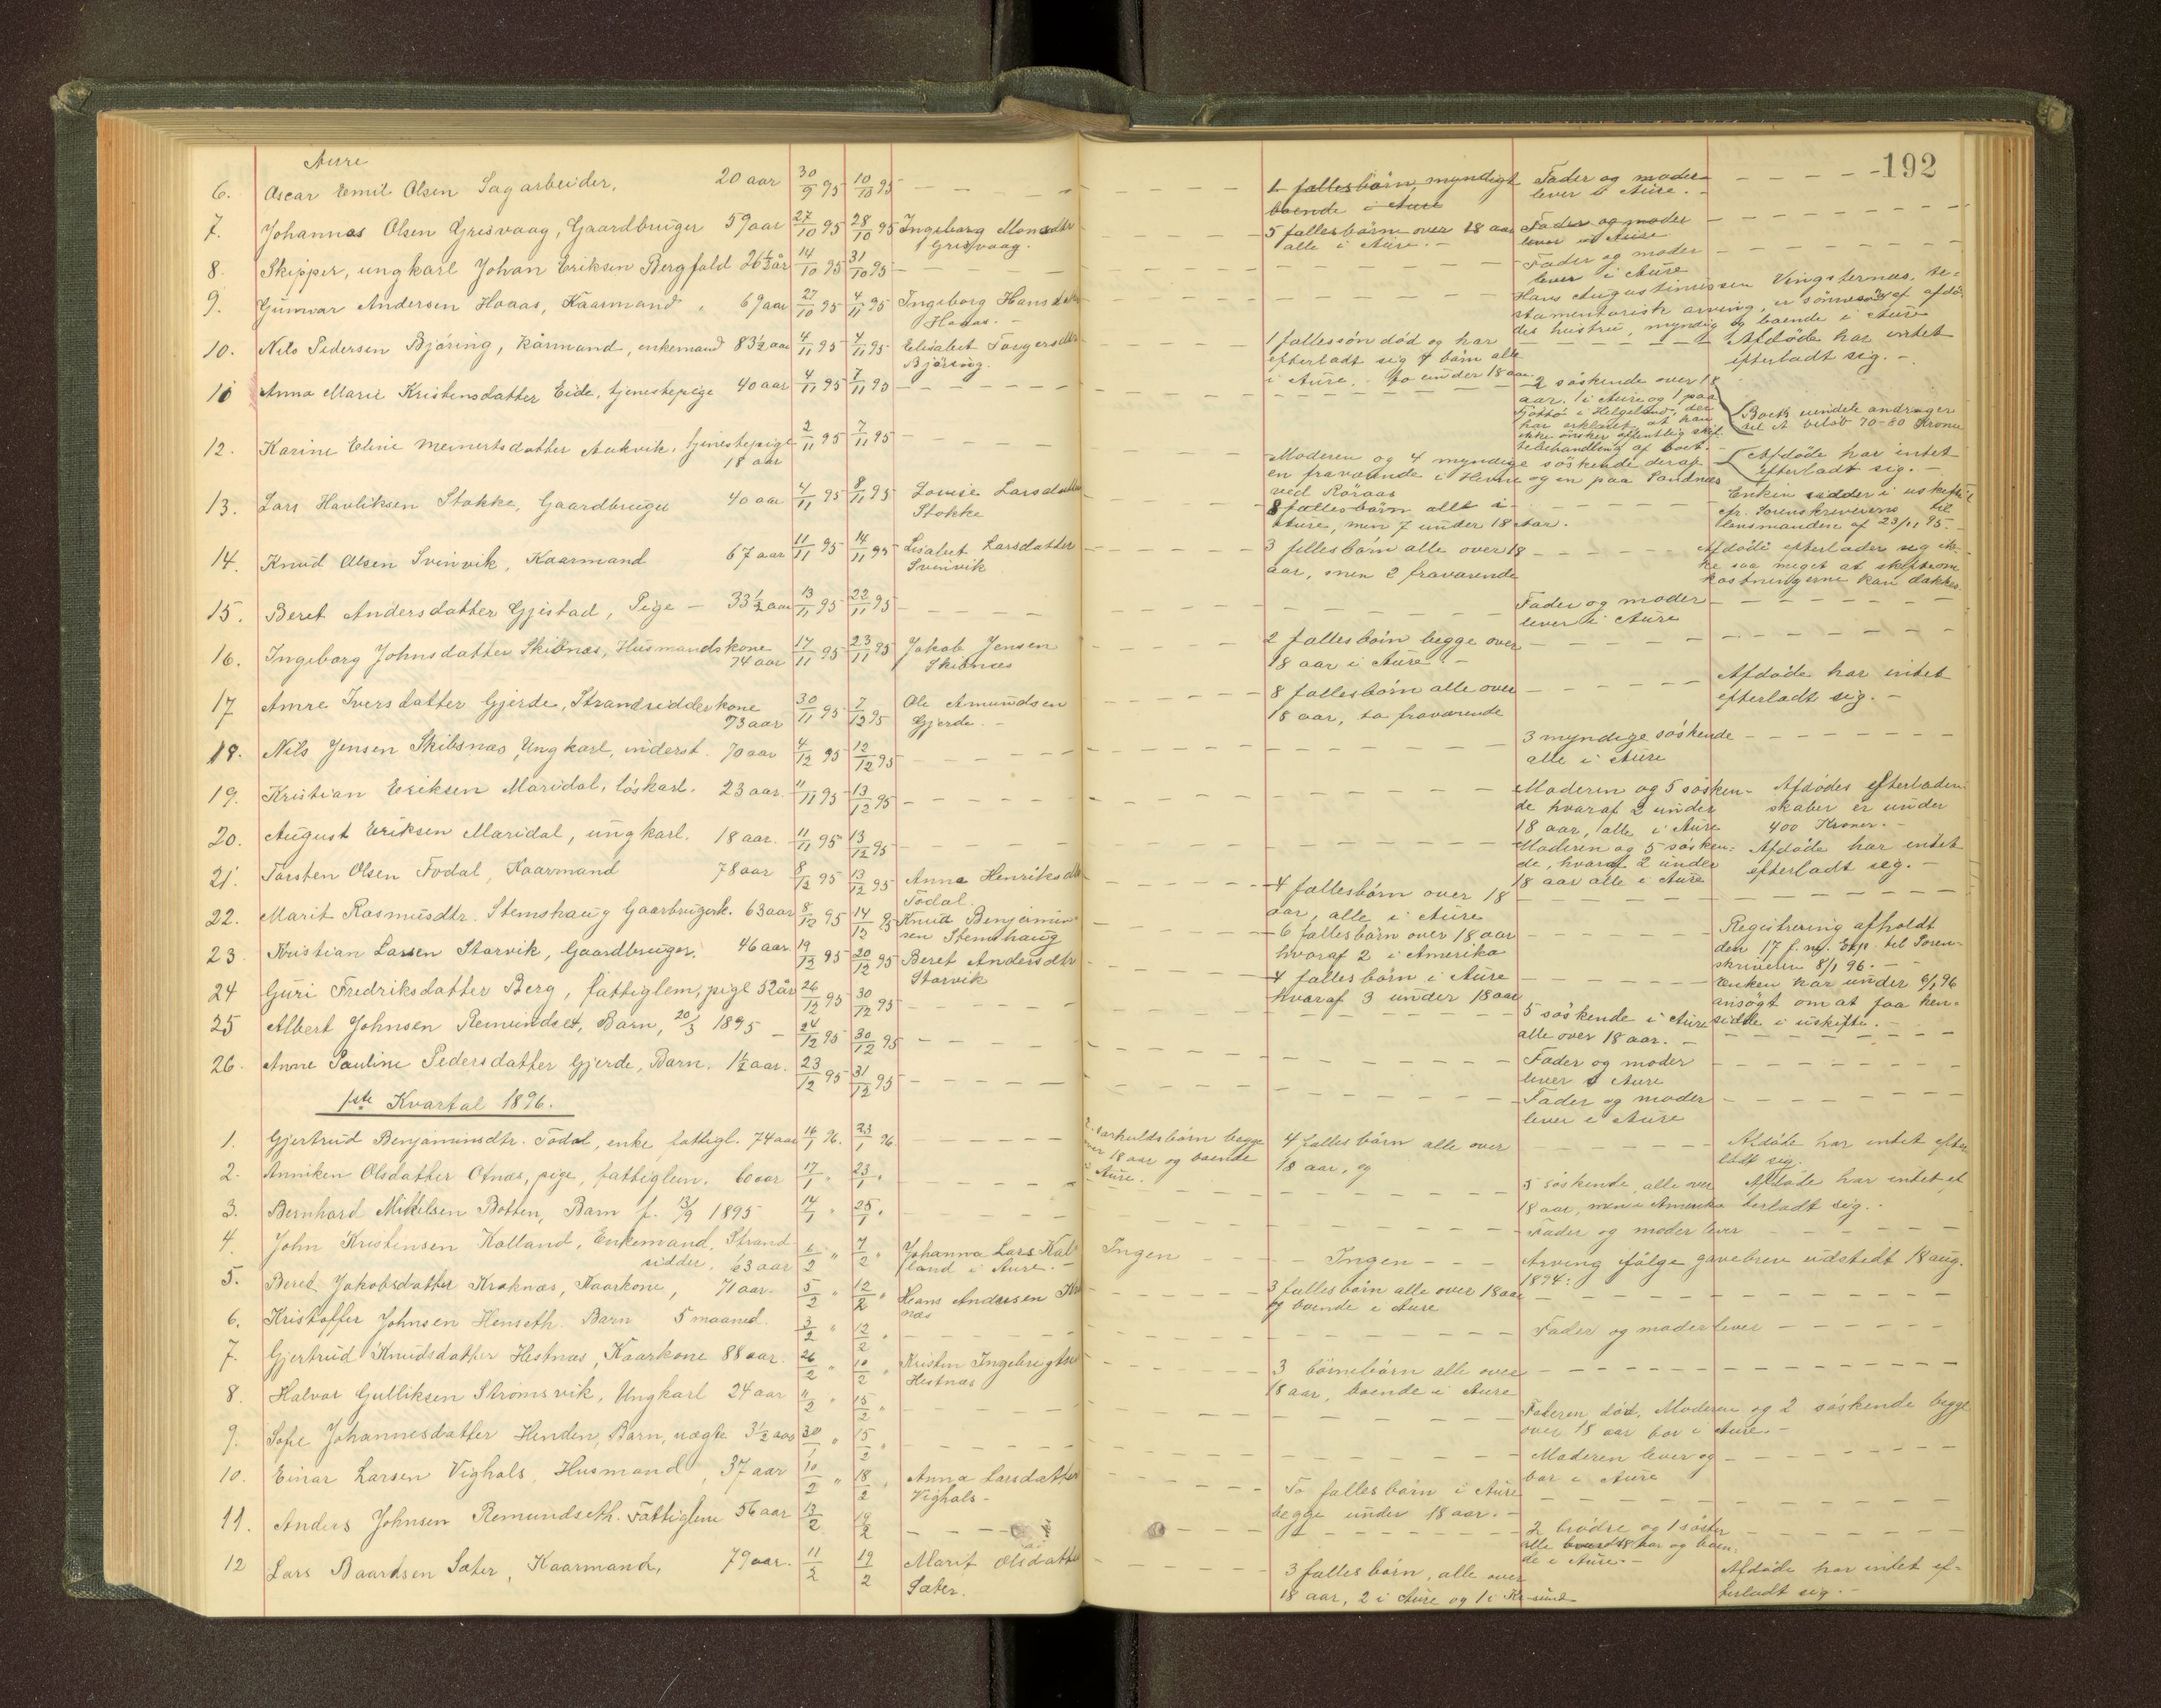 192
Aure
6. Oscar Emil Olsen Sagarbeider, 20 aar 30/9 95 10/10 95 1 fællesbørn, myndigt boende i Aure Fader og moder lever i Aure.
7. Johannes Olsen Grisvaag, Gaardbruger 59 aar 27/10 95 28/10 95 Ingeborg Monsdtr Grisvaag. 5 fællesbørn over 18 aar alle i Aure. Fader og moder lever i Aure
8. Skipper, ungkarl Johan Eriksen Bergfald 26½ år 14/10 95 31/10 95 Fader og moder lever i Aure
9. Gunnar Andersen Hoaas, Kaarmand, 69 aar 27/10 95 4/11 95 Ingeborg Hansdtr Hoaas. Hans Augustinussen Vingsternes, testamentarisk arving, er sønnesøn af afdødes hustru, myndig og boende i Aure
10. Nils Pedersen Bjøring, Kårmand, enkemand 83½ aar 4/11 95 4/11 95 Elisabet Torgersdtr Bjøring. 1 fællessøn død og har efterladt sig 4 børn alle i Aure. to under 18 aar. Afdøde har intet efterladt sig.
11 Anna Marie Kristensdatter Eide, tjenestepige 40 aar 4/11 95 7/11 95 2 søskende over 18 aar. 1 i Aure og 1 paa Tjøttø i Helgeland, der har erklæret at han ikke ønsker offentlig skiftebehandling af boet. Boets midele andrager til et beløb 70-80 Kroner
12. Karine Eline Meinertsdatter Aukvik, tjenestepige 18 aar 2/11 95 7/11 95 Moderen og 4 myndige søskende deraf en fraværende i Hevne og en paa Sandnes ved Røraas Afdøde har intet efterladt sig.
13. Lars Havliksen Stokke, Gaardbruger 40 aar 4/11 95 8/11 95 Lovise Larsdatter Stokke 8 fællesbørn allt i Aure, men 7 under 18 aar. Enken sidder i uskiftet cfr. Sorenskriverens til lensmanden af 23/11 95.
14. Knud Olsen Svinvik, Kaarmand 67 aar 11/11 95 14/11 95 Lisabet Larsdatter Svinvik 3 fellesbørn alle over 18 aar, men 2 fraværende Afdøde efterlader sig ikke saa meget at skifteomkostningerne kan dækkes
15. Beret Andersdatter Gjistad, Pige 33½ aar 13/11 95 22/11 95 Fader og moder lever i Aure
16. Ingeborg Johnsdatter Skibnæs, Husmandskone 74 aar 17/11 95 23/11 95 Jakob Jensen Skibnæs 2 fællesbørn begge over 18 aar i Aure.
17 Anne Iversdatter Gjerde, Strandsidderkone 73 aar 30/11 95 7/12 95 Ole Amundsen Gjerde. 8 fællesbørn alle over 18 aar, to fraværende Afdøde har intet efterladt sig.
18. Nils Jensen Skibsnæs, Ungkarl, inderst. 70 aar 4/12 95 12/12 95 3 myndige søskende alle i Aure
19. Kristian Eriksen Maridal, løskarl. 23 aar. 11/11 95 13/12 95 Moderen og 5 søskende hvoraf 2 under 18 aar, alle i Aure Afdødes efterladenskaber er under 400 Kroner.
20. August Eriksen Maridal, ungkarl. 18 aar. 11/11 95 13/12 95 Moderen og 5 søskende, hvoraf 2 under 18 aar alle i Aure Afdøde har intet efterladt seg.
21. Torsten Olsen Todal, Kaarmand 78 aar 8/12 95 13/12 95 Anne Henriksdtr Todal. 4 fællesbørn over 18 aar, alle i Aure
22. Marit Rasmusdtr. Stemshaug Gaarbrugerk. 63 aar 8/12 95 14/12 95 Knud Benjaminsen Stemshaug 6 fællesbørn over 18 aar hvoraf 2 i Amerika Registrering afholdt den 17 f. m. Exp. til Sorenskriveren 8/1 96.
23. Kristian Larsen Storvik, Gaardbruger. 46 aar 19/12 95 20/12 95 Beret Andersdtr Storvik 4 fællesbørn i Aure hvoraf 3 under 18 aar Enken har under 6/1 96 ansøgt om at faa hensidde i uskifte.
24 Guri Fredriksdatter Berg, fattiglem, pige 52 år 26/12 95 30/12 95 5 søskende i Aure alle over 18 aar.
25 Albert Johnsen Remundset, Barn, 20/3 1895 24/12 95 30/12 95 Fader og moder lever i Aure
26. Anne Pauline Pedersdatter Gjerde, Barn. 1½ aar. 23/12 95 31/12 95 Fader og moder lever i Aure
1ste Kvartal 1896.
1. Gjertrud Benjaminsdtr. Todal, enke fattigl. 74 aar 16/1 96. 23/1 96. særkuldsbørn begge over 18 aar og boende i Aure. 4 fælles børn alle over 18 aar, og Afdøde har intet efterladt sig.
2. Anniken Olsdatter Otnæs, pige, fattiglem. 60 aar 17/1 " 23/1 " 5 søskende, alle over 18 aar, men i Amerika Afdøde har intet efterladt sig.
3. Bernhard Mikkelsen Botten, Barn f. 13/9 1895 14/1 " 25/1 " Fader og moder lever
4. John Kristensen Kalland, Enkemand, Strandsidder. 63 aar 6/2 " 7/2 " Johanna Lars Kalland i Aure. Ingen Ingen Arving ifølge gavebrev udstedt 18 aug. 1894.
5. Beret Jakobsdatter Kraknæs, Kaarkone, 71 aar. 5/2 " 12/2 " Hans Andersen Kraknæs 3 fællesbørn alle over 18 aar og boende i Aure
6. Kristoffer Johnsen Henseth. Barn 5 maaned. 3/2 " 12/2 " Fader og moder lever
7. Gjertrud Knudsdatter Hestnæs, Kaarkone 88 aar. 26/2 " 10/2 " Kristen Ingebrigtsen Hestnæs 3 børnebørn alle over 18 aar, boende i Aure
8. Halvor Gulliksen Strømsvik, Ungkarl 24 aar 11/2 " 15/2 " Faderen død, Moderen og 2 søskende begge over 18 aar bor i Aure.
9. Sofie Johannesdatter Henden, Barn, uægte 3½ aar 30/1 " 15/2 " Moderen lever og bor i Aure
10. Einar Larsen Vighals, Husmand, 37 aar 10/2 " 18/2 " Anna Larsdatter Vighals To fællesbørn i Aure begge under 18 aar.
11. Anders Johnsen Remundseth. Fattiglem 56 aar 13/2 19/2 2 brødre og 1 søster alle over 18 aar og boende i Aure.
12 Lars Baardsen Sæter, Kaarmand, 79 aar. 11/2 19/2 Marit Olsdatter Sæter. 3 fællesbørn, alle over 18 aar, 2 i Aure og 1 i Kr-sund Afdøde har intet efterladt sig.